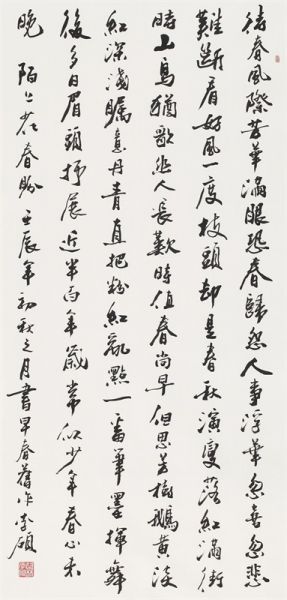 待春風際芳華滿眼恐春歸怨人事浮華忽喜忽悲
難斷看好風一度枝頭却是春秋演變落紅滿街
時山鳥猶歌幽人長歎時值春尚早但思芳樹鵝黃淡
紅深淺矚意丹青直把粉紅亂點一番筆墨揮舞
後多日眉頭抒展近半百年歲常似少年春心未
晚 陌上花春盼壬辰年初秋之月書早春舊作李碩